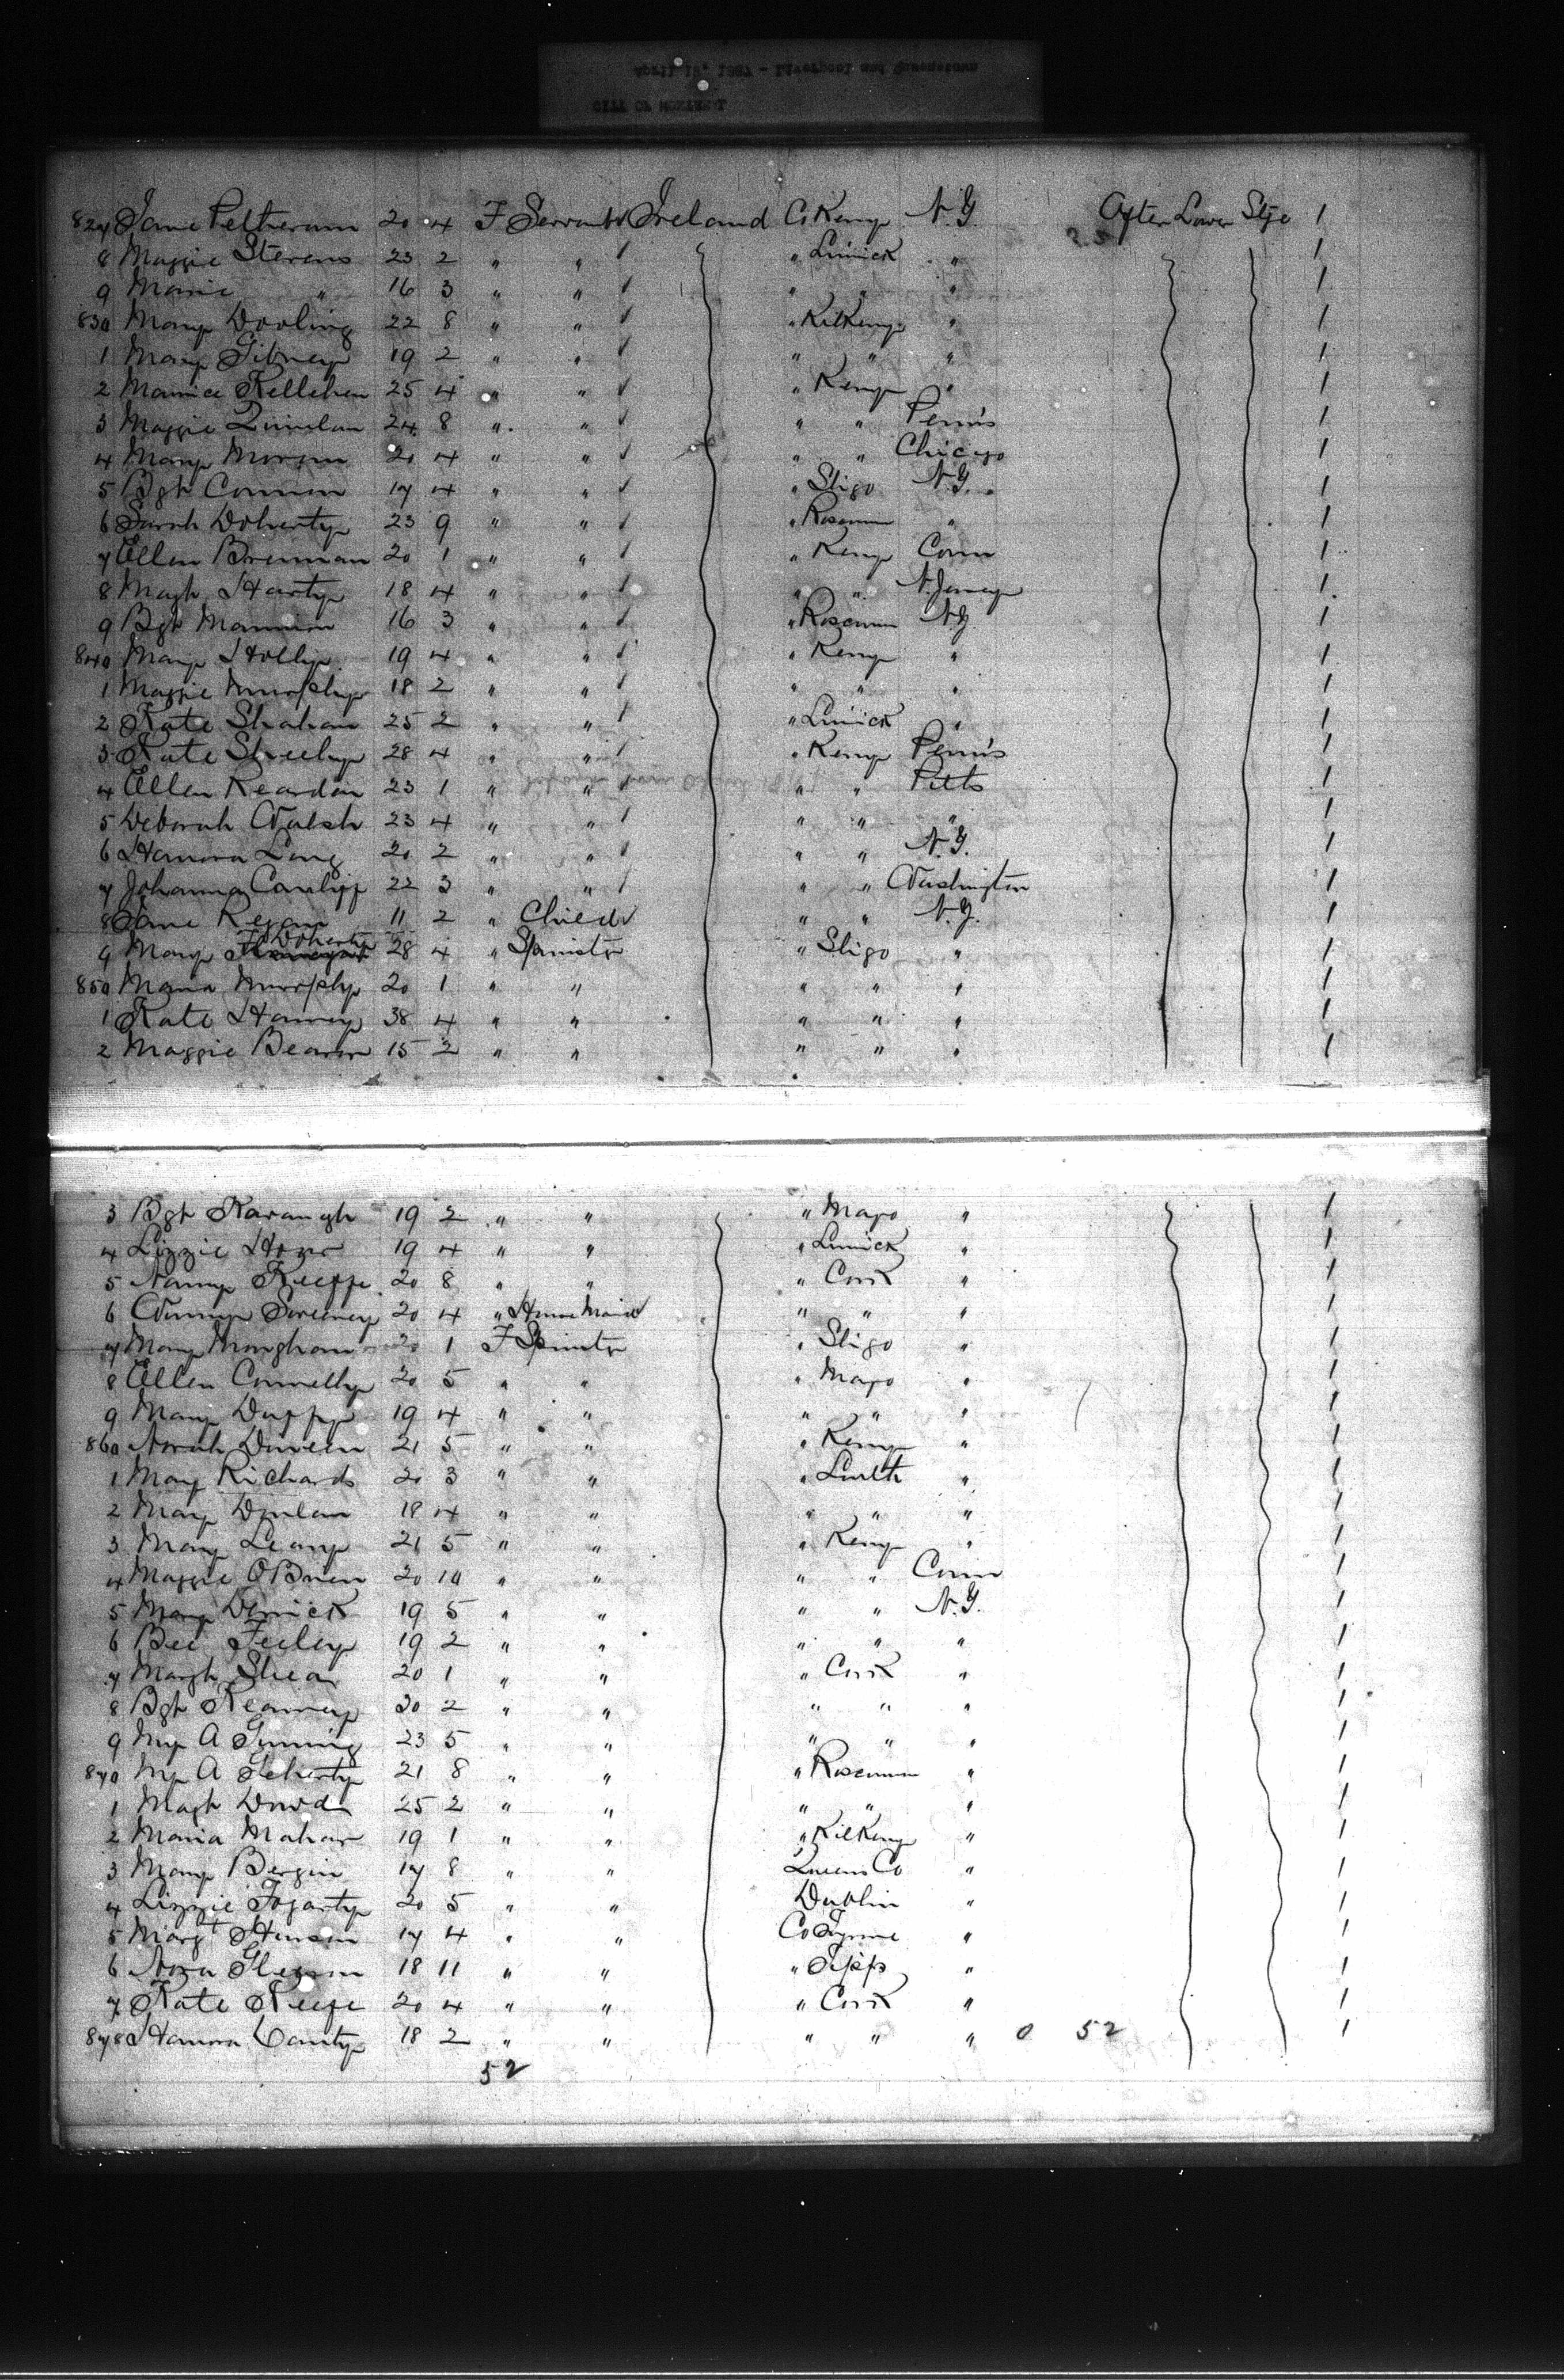 827 Jane Petheram 20 4 F Servant Ireland Co Kerry N.Y. After Lower Stge 1
8 Maggie Stevens 23 2 " " " Limick " 1
9 Marie " 16 3 " " " " " 1
830 Mary Dooling 22 8 " " " Kilkeny " 1
1 Mary Gibney 19 2 " " " " " 1
2 Maurice Kellehen 25 4 " " " Kerry " 1
3 Maggie Quinlan 24 8 " " " " Penn's 1
4 Mary Morgan 20 4 " " " " Chicago 1
5 Bgt Connon 17 4 " " " Sligo N.Y. 1
6 Sarah Doherty 23 9 " " " Roscomm " 1
7 Ellen Brennan 20 1 " " " Kerry Conn 1
8 Magt Harty 18 4 " " " " N.Jersey 1
9 Bgt Mannion 16 3 " " " Roscomm N.Y. 1
840 Mary Holly 19 4 " " " Kerry " 1
1 Maggie Murphy 18 2 " " " " " 1
2 Kate Shahan 25 2 " " " Limick " 1
3 Kate Sheehy 28 4 " " " Kerry Penn's 1
4 Ellen Reardon 23 1 " " " " Pitts 1
5 Deborah Walsh 23 4 " " " " " 1
6 Hanora Long 20 2 " " " " N.Y. 1
7 Johanna Canliff 22 3 " " " " Washington 1
8 Jane Regan 11 2 " Child " " N.Y. 1
9 Mary Doherty 28 4 " Spinster " Sligo " 1
850 Maria Murphy 20 1 " " " " " 1
1 Kate Harvey 38 4 " " " " " 1
2 Maggie 15 2 " " " " " 1
3 Bgt Kavangh 19 2 " " " Mayo " 1
4 Lizzie 19 4 " " " Limick " 1
5 Nanny Keeffe 20 8 " " " Cork " 1
6 Sweeney 20 4 " House Maid " " " 1
7 Mary Monghan 20 1 F Spinster " Sligo " 1
8 Ellen Connelly 20 5 " " " Mayo " 1
9 Mary Duffy 19 4 " " " " " 1
860 Norah Dineen 21 5 " " " Kerry " 1
1 Mary Richards 20 3 " " " Louth " 1
2 Mary Donlan 18 4 " " " " " 1
3 Mary Leary 21 5 " " " Kerry " 1
4 Maggie OBrien 20 10 " " " " Conn 1
5 Mary Derrick 19 5 " " " " N.Y. 1
6 Bee Feeley 19 2 " " " " " 1
7 Margt Shea 20 1 " " " Cork " 1
8 Bgt Kearney 30 2 " " " " " 1
9 My A 23 5 " " " " " 1
870 My A 21 8 " " " Roscomm " 1
1 Magt Dowd 25 2 " " " " " 1
2 Maria Mahar 19 1 " " " Kilkeny " 1
3 Mary Bergin 17 8 " " Queens Co " 1
4 Lizzie Fogarty 20 5 " " Dublin " 1
5 Margt 17 4 " " Co Tyrone " 1
6 Nora Gleeson 18 11 " " " Tipp " 1
7 Kate Keefe 20 4 " " " Cork " 1
878 Hanora Canty 18 2 " " " " " 0 52 1
52